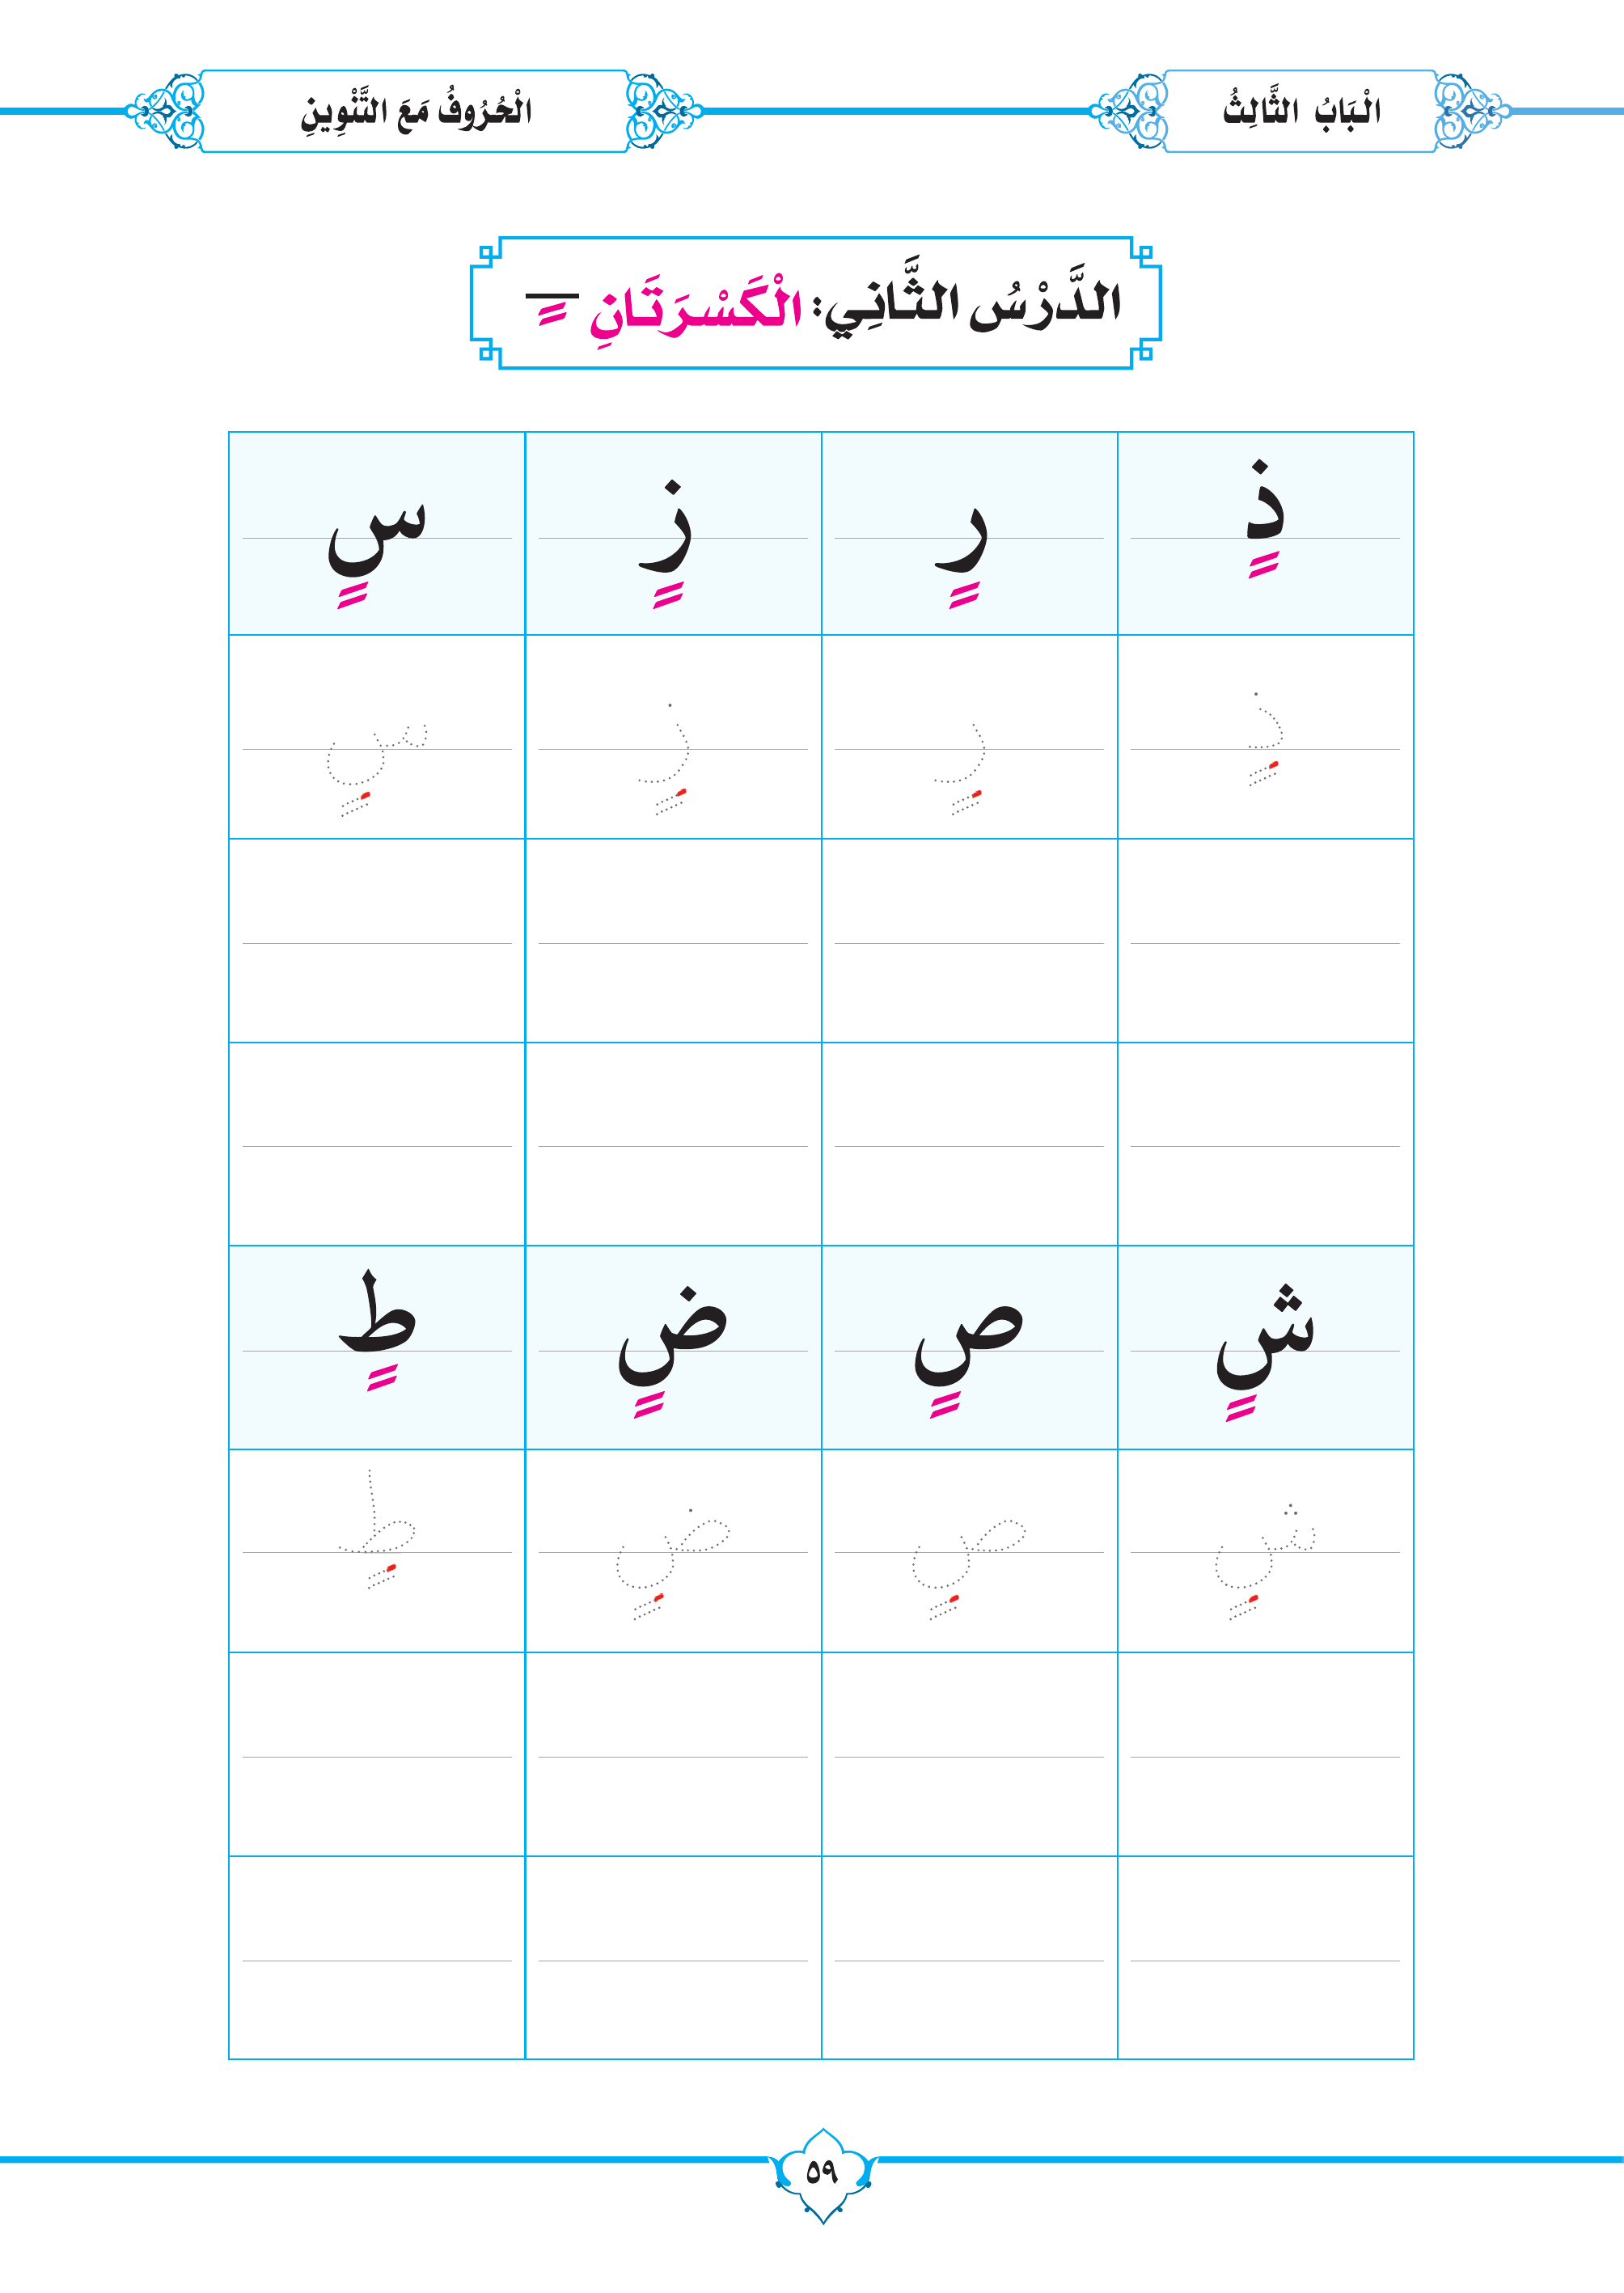 الْبَابُ الثَّالِثُ
الْحُرُوفُ مَعَ التَّنْوِينِ
الدَّرْسُ الثَّانِي: الْكَسْرَتَانِ ـٍ
ذٍ رٍ زٍ سٍ
ذٍ رٍ زٍ سٍ
شٍ صٍ ضٍ طٍ
شٍ صٍ ضٍ طٍ
٥٩